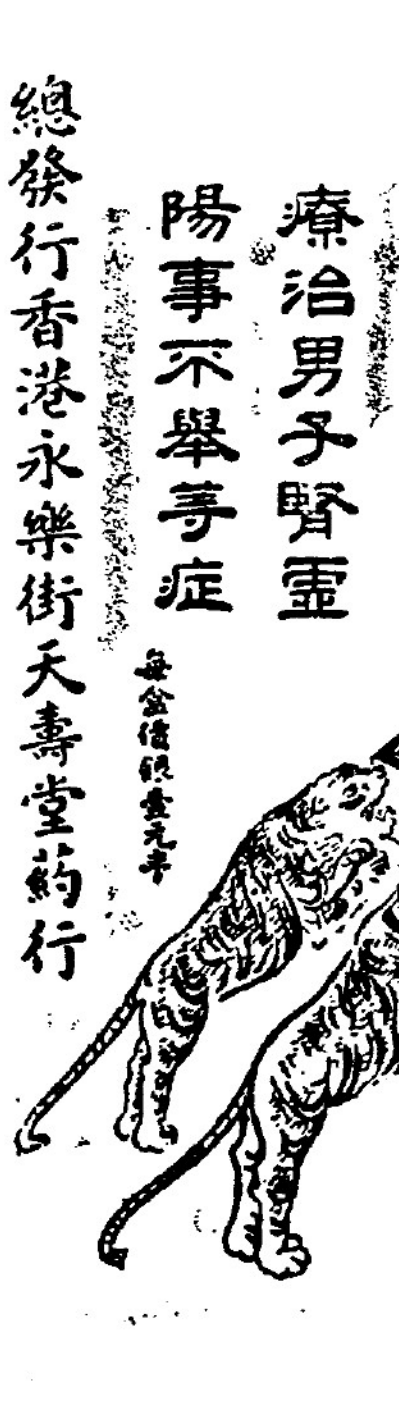 療治男子腎虛
陽事不舉等症
每盒價銀壹元半
總發行香港永樂街天壽堂葯行